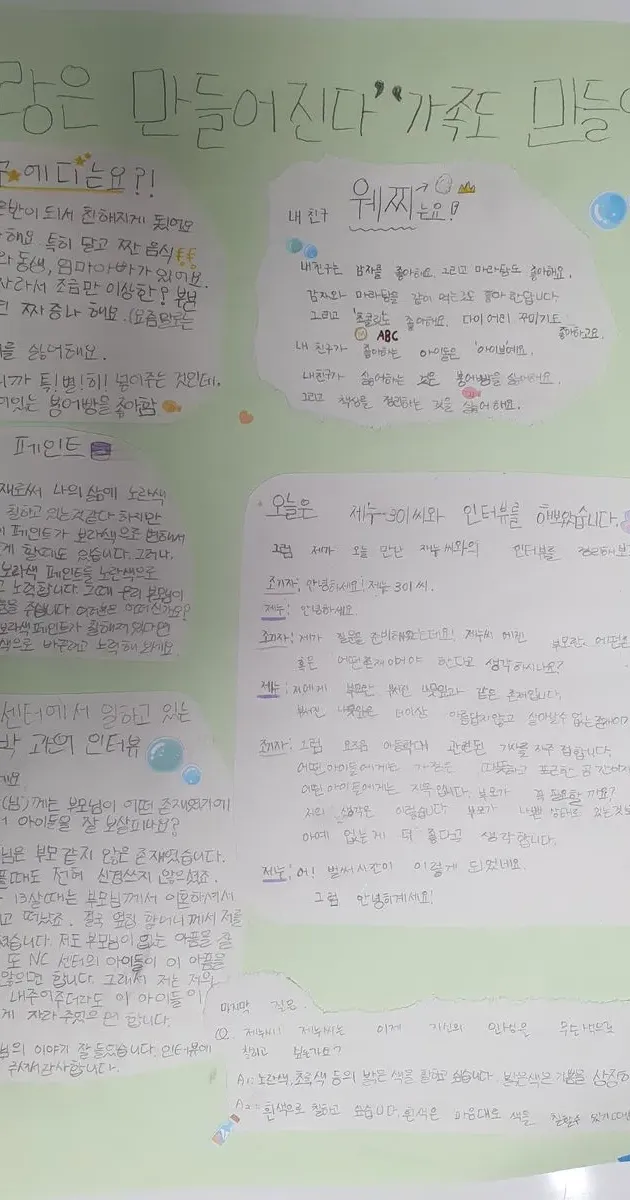 랑은 만들어진다" "가족도 만들
에디는요?!
은반이 되서 친해지게 됐어요
해요. 특히 달고 짠 음식
와 동생, 엄마아빠가 있어요.
자라서 조금만 이상한?
짜증나 해요. (요즘말로는
를 싫어해요.
니까 특!별!히! 넘어주는 것인데.
맛있는 붕어빵을 좋아함
내 친구 웨찌는요!
내친구는 감자를 좋아해요. 그리고 마라탕도 좋아해요.
감자와 마라탕을 같이 먹는것도 좋아 한답니다
그리고 초콜릿도 좋아해요. 다이어리 꾸미기도 좋아하고요.
ABC
내 친구가 좋아하는 아이돌은 '아이브'예요.
내친구가 싫어하는 것은 붕어빵을 싫어해요.
그리고 책상을 정리하는 것을 싫어 해요.
페인트
나의 삶에 노란색
칠하고 있는것같다 하지만
페인트가 보라색으로 변해서
할때도 있습니다. 그러나,
보라색 페인트를 노란색으로
노력합니다. 그때 우리 부모님이
을 주십니다. 여러분은 어떠신가요?
보라색페인트가 칠해져 있다면
색으로 바꾸려고 노력해 보세요.
오늘은 제누-301씨와 인터뷰를 해보았습니다.
그럼 제가 오늘 만난 제누씨와의 인터뷰를 정리해보
조기자: 안녕하세요! 제누 301 씨.
제누: 안녕하세요
조기자: 제가 질문을 준비해왔는데요! 제누씨 에겐 부모란 어떤존
혹은 어떤존재이어야 한다고 생각하시나요?
제누: 저에게 부모란 부서진 나뭇잎과 같은 존재입니다.
부서진 나뭇잎은 더이상 아름답지않고 살아날수 없는존재이기
조기자: 그럼 요즈음 아동학대 관련된 기사를 자주 접합니다.
어떤 아이들에게는 가정은 따뜻하고 포근한 공간이지
어떤 아이들에게는 지옥 입니다. 부모가 꼭 필요할 까요?
저의 생각은 이렇습니다 부모가 나쁜 상태로 있는것보
아예 없는게 더 좋다고 생각 합니다.
제누: 어! 벌써시간이 이렇게 되었네요.
그럼 안녕히계세요!
센터에서 일하고 있는
박 과의 인터뷰
(님)께는 부모님이 어떤 존재였기에
아이들을 잘 보살피나요?
님은 부모 같지 않은 존재였습니다.
때도 전혀 신경쓰지 않으셨죠.
13살때는 부모님께서 이혼하셔서
고 떠났죠. 결국 옆집 할머니께서 저를
습니다. 저도 부모님이 없는 아픔을 잘
또 NC 센터의 아이들이 이 아픔을
않으면 합니다. 그래서 저는 저의
내주어주더라도 이 아이들이
게 자라 주었으면 합니다.
님의 이야기 잘 들었습니다. 인터뷰에
주셔서감사합니다.
마지막 질문.
Q. 제누씨! 제누씨는 이제 자신의 인생을 무슨색으로
칠하고 싶은가요?
A1: 노란색, 초록색 등의 밝은 색을 칠하고 싶습니다. 밝은색은 기쁨을 상징하
A2: 흰색으로 칠하고 싶습니다. 흰색은 마음대로 색을 칠할수 있기때문